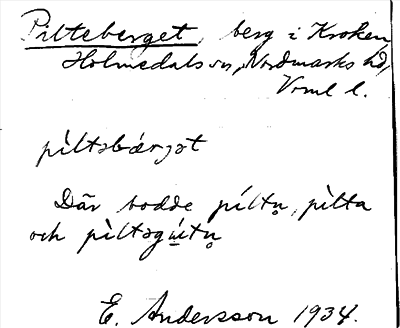 Pilteberget, berg i Kroken,
Holmedals sn, Nordmarks hd,
Vrml l.
pìltəbærjət
Där bodde píltn̥, pìlta
och pìltəgu̍tn̥
E. Andersson 1934.